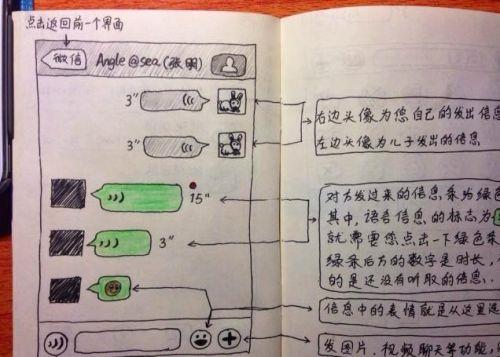 点击返回前一个界面
微信 Angle@sea(张明)
3"
3"
15"
3"
右边头像为您自己的发出信息
左边头像为儿子发出的信息
对方发过来的信息条为绿色
其中,语音信息的标志为
就需要您点击一下绿色条
绿条后方的数字是时长,
的是还没有听取的信息.
信息中的表情就是从这里选
发图片、视频聊天等功能,